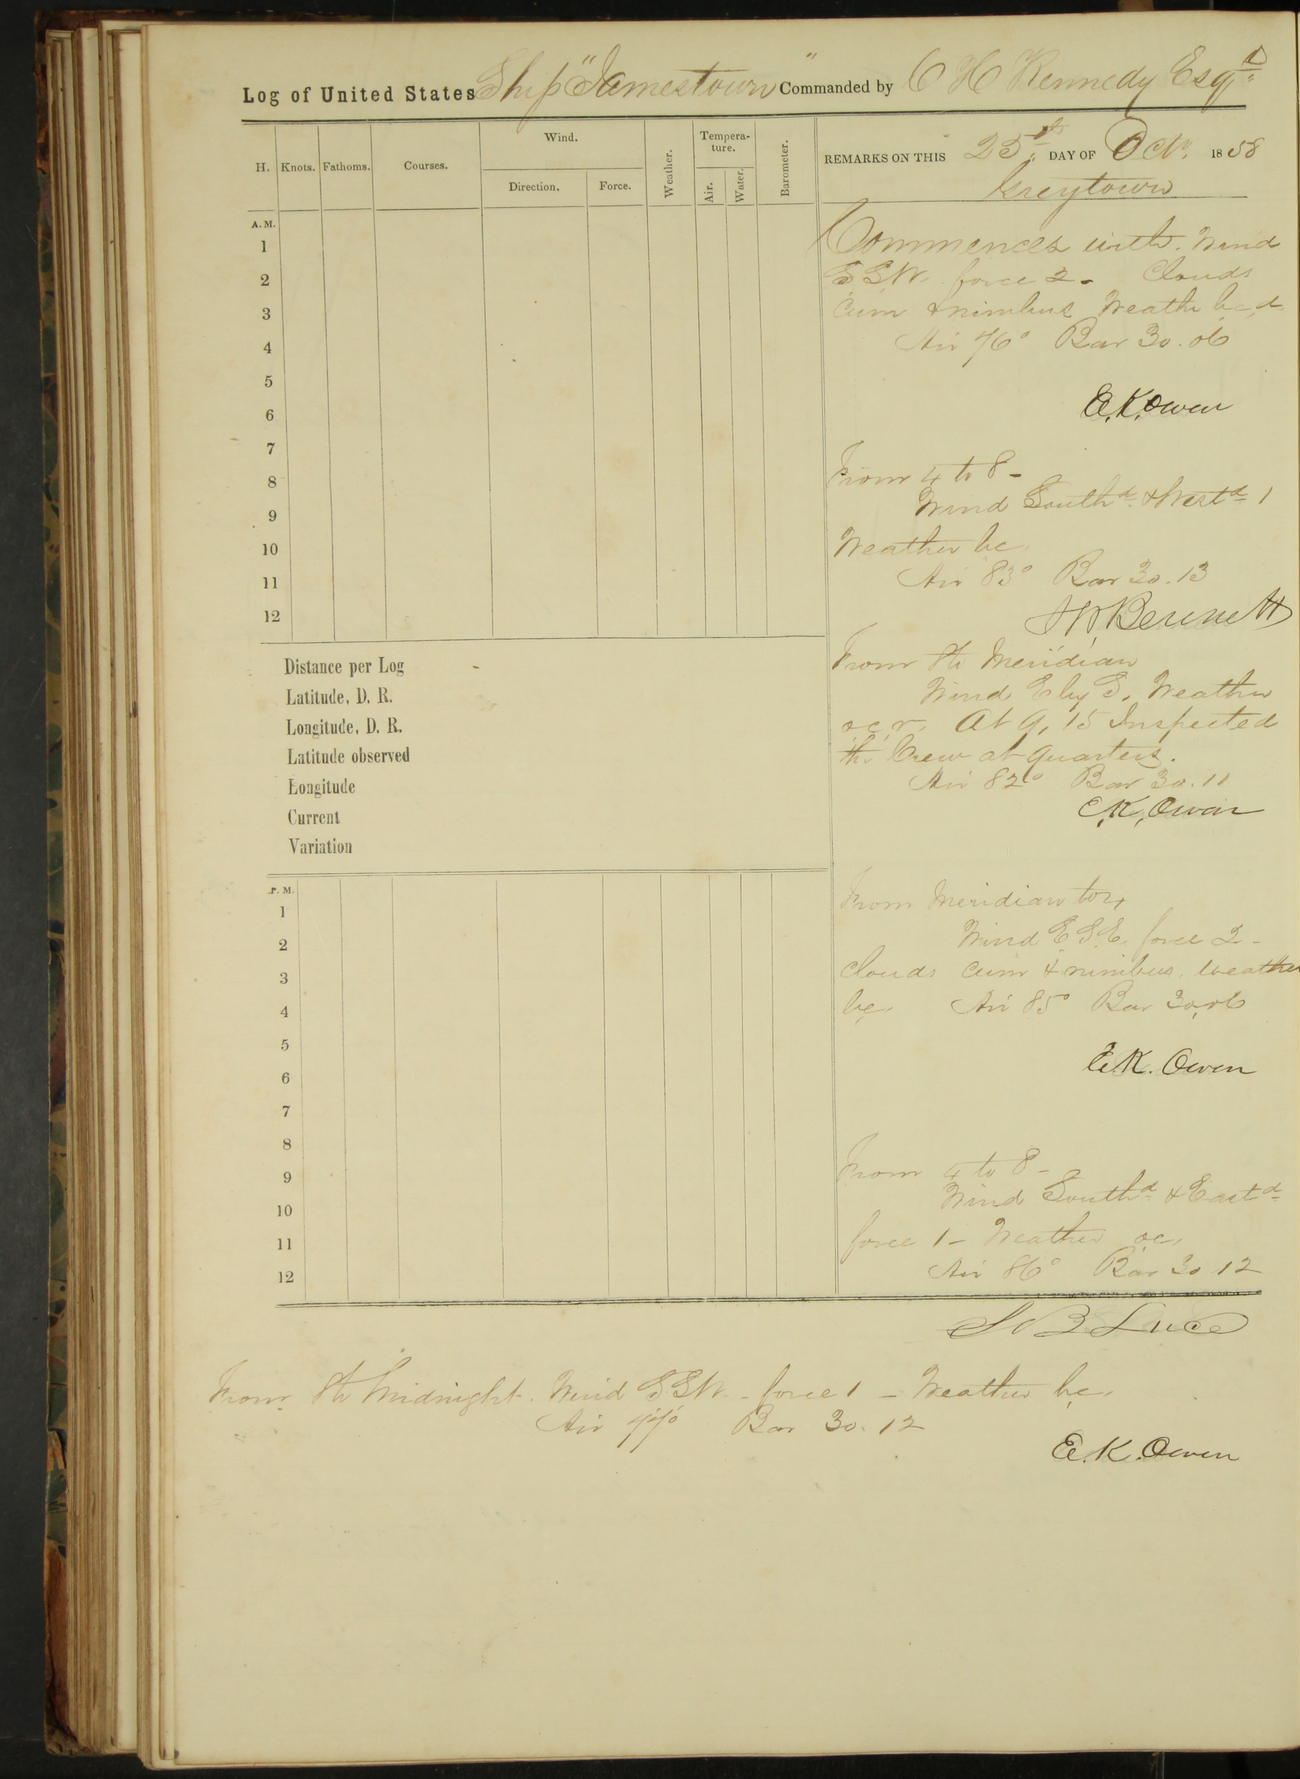 Log of United States Ship "Jamestown" Commanded by C H Kennedy Esqr
H. Knots. Fathoms. Courses. Wind. Direction. Force. Weather. Tempera-ture. Air. Water. Barometer.
REMARKS ON THIS 25th DAY OF Octr. 1858
Greytown
A.M.
1
2
3
4
5
6
7
8
9
10
11
12
Commences with Wind
SSW. force 2 - Clouds
Cum & nimbus Weathr bc,d
Air 76° Bar 30.06
E.K. Owen
From 4 to 8 -
Wind Southd & Westd 1
Weather bc
Air 83° Bar 30.13
Bennett
From 8 to Meridian
Wind E by S. Weather
o,c,r, At 9,15 Inspected
the Crew at quarters.
Air 82° Bar 30.11
E.K. Owen
Distance per Log
Latitude, D. R.
Longitude, D. R.
Latitude observed
Longitude
Current
Variation
P. M.
1
2
3
4
5
6
7
8
9
10
11
12
From Meridian to 4
Wind E.S.E. force 2 -
Clouds Cum & nimbus. Weather
bc, Air 85° Bar 30.06
E.K. Owen
From 4 to 8 -
Wind Southd & Eastd
force 1 - Weather oc,
Air 86° Bar 30 12
S B Luce
From 8 to Midnight. Wind SSW. - force 1 - Weather bc,
Air 77° Bar 30.12
E.K. Owen